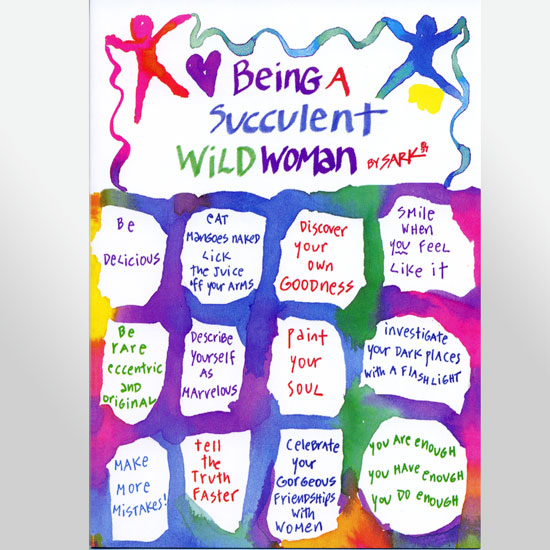 Being A
Succulent
WILD WOMAN BY SARK
Be
DELicious
eat
Mangoes naked
Lick
the Juice
off your ARMS
Discover
your
own
GOODNESS
Smile
when
you FeeL
Like it
Be
rare
eccentric
and
original
Describe
Yourself
as
Marvelous
paint
your
SOUL
investigate
your DARK places
with A FLASHLIGHT
Make
More
Mistakes!
tell
the
Truth
Faster
Celebrate
your
Gorgeous
Friendships
with
Women
you are enough
you have enough
you do enough